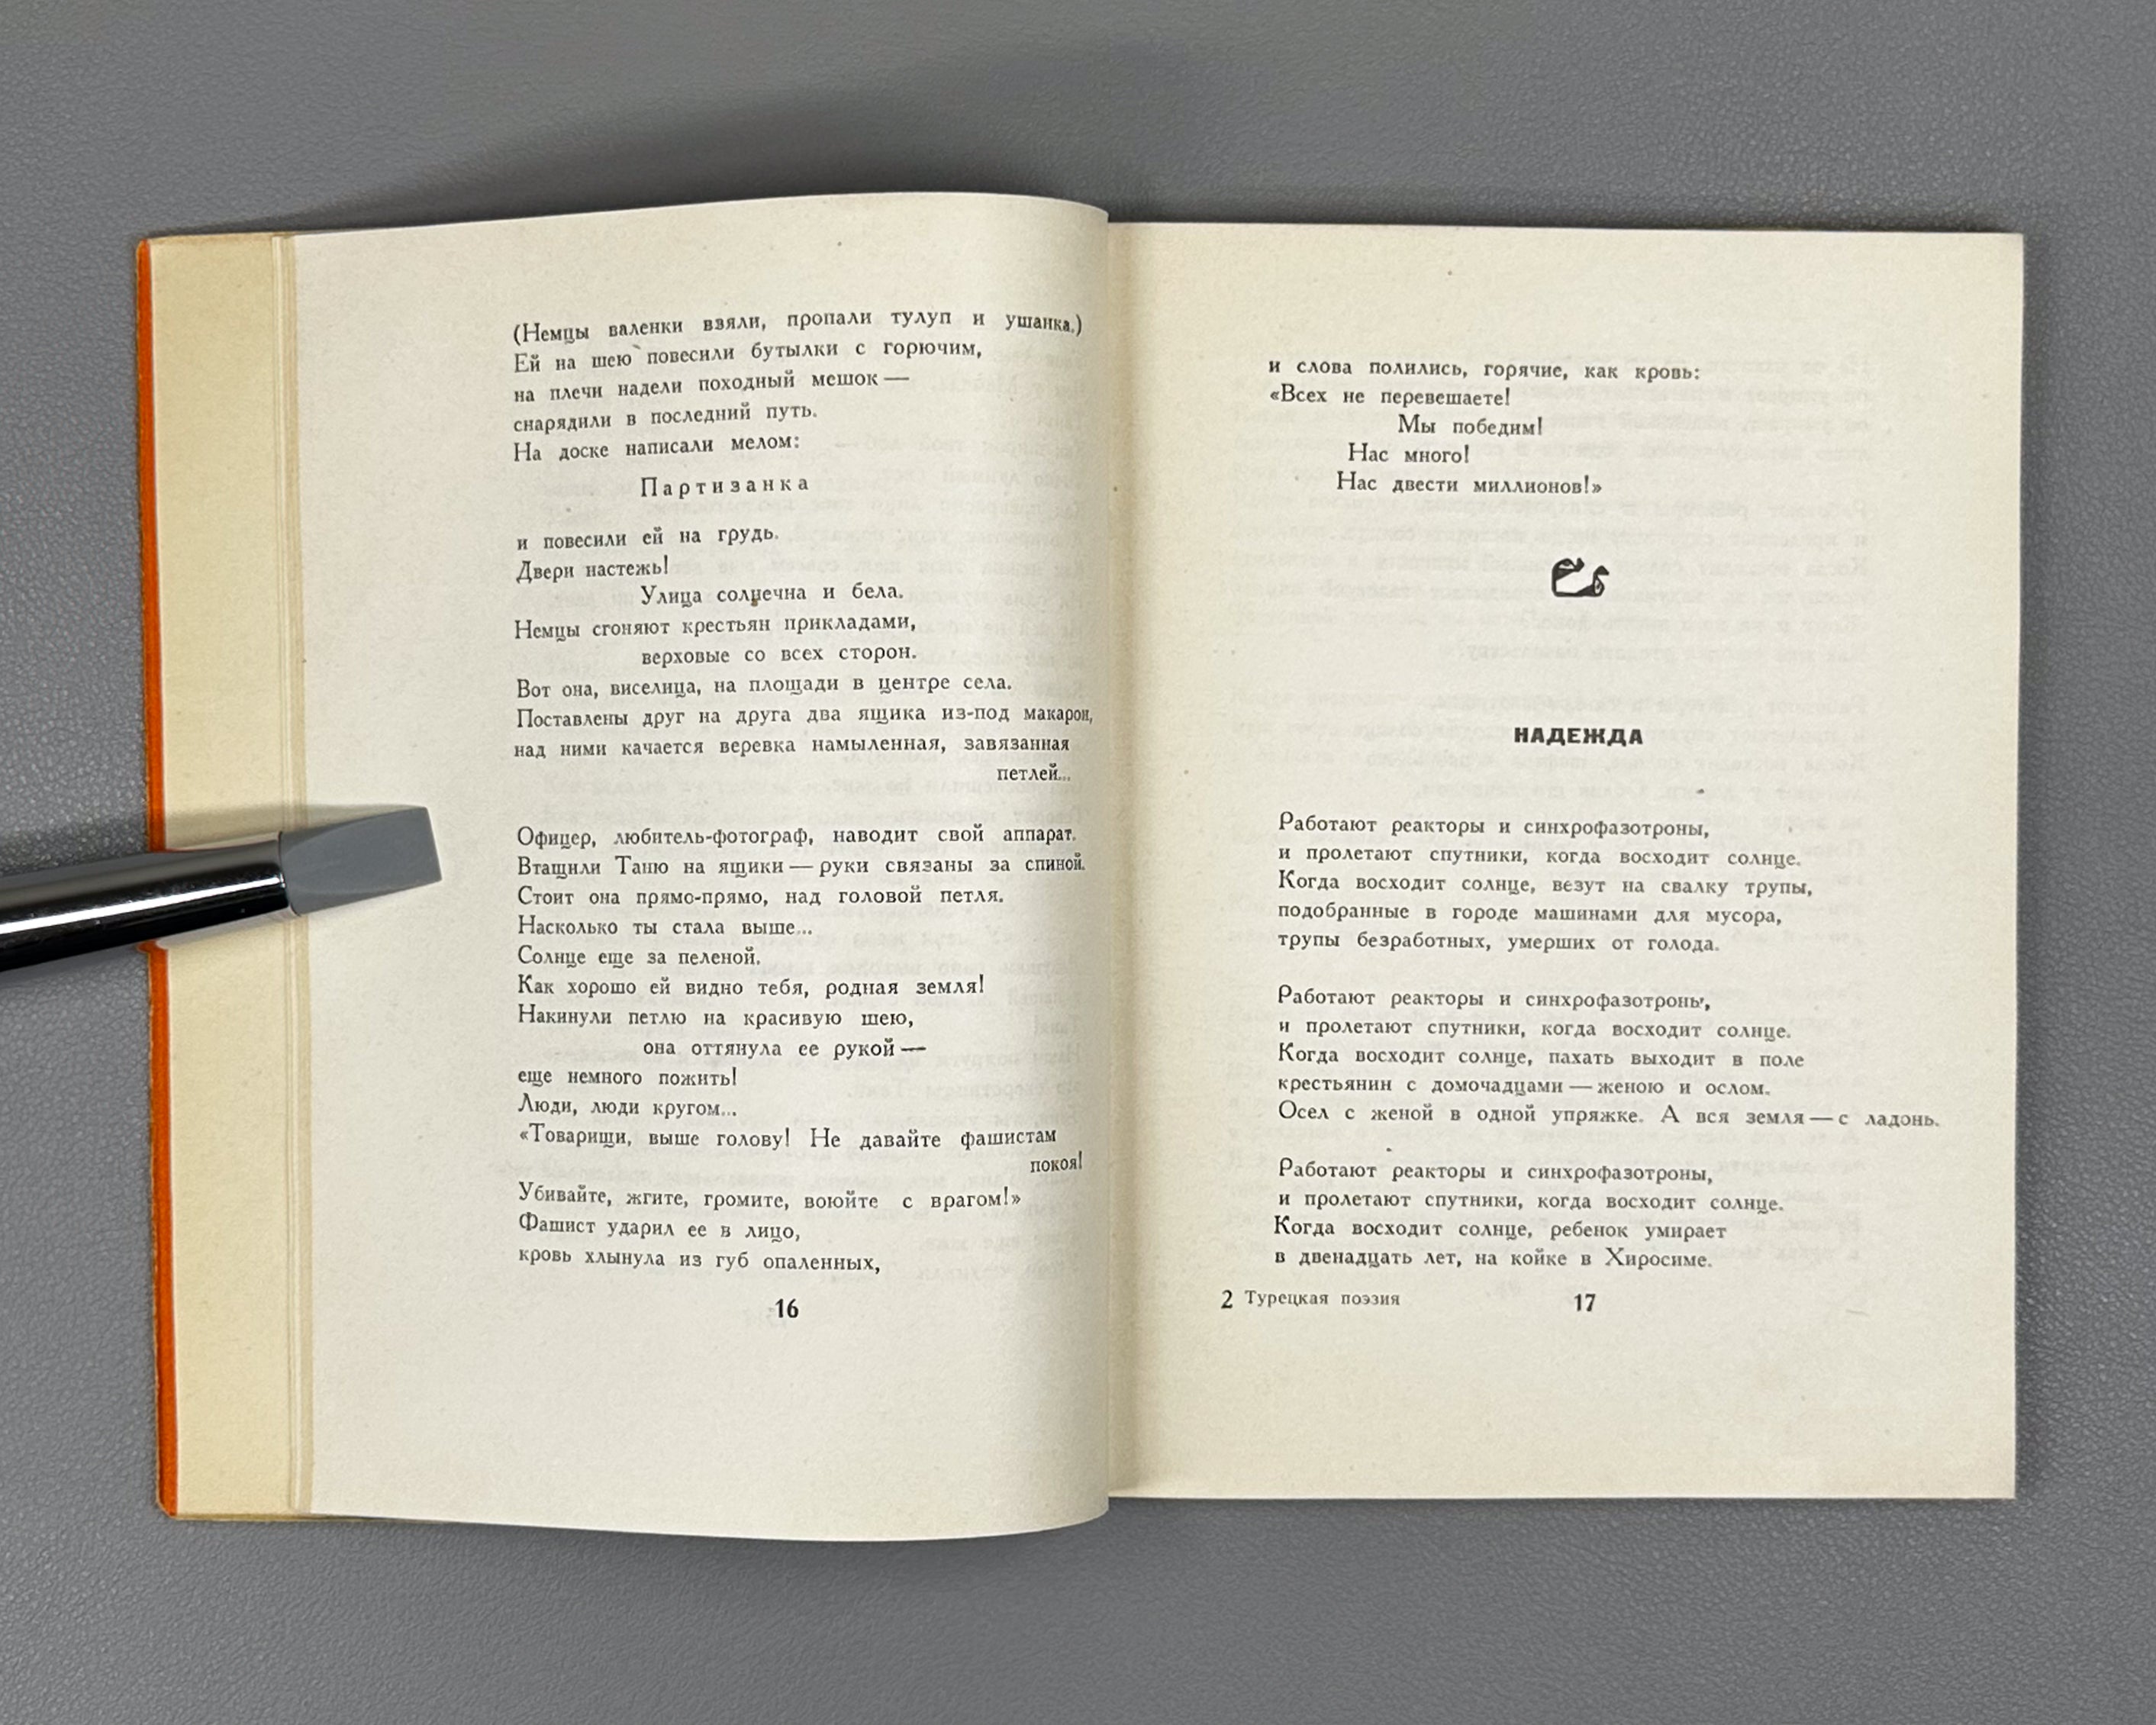 (Немцы валенки взяли, пропали тулуп и ушанка.)
Ей на шею повесили бутылки с горючим,
на плечи надели походный мешок —
снарядили в последний путь.
На доске написали мелом:
Партизанка
и повесили ей на грудь.
Двери настежь!
Улица солнечна и бела.
Немцы сгоняют крестьян прикладами,
верховые со всех сторон.
Вот она, виселица, на площади в центре села.
Поставлены друг на друга два ящика из-под макарон,
над ними качается веревка намыленная, завязанная
петлей...
Офицер, любитель-фотограф, наводит свой аппарат.
Втащили Таню на ящики — руки связаны за спиной.
Стоит она прямо-прямо, над головой петля.
Насколько ты стала выше...
Солнце еще за пеленой.
Как хорошо ей видно тебя, родная земля!
Накинули петлю на красивую шею,
она оттянула ее рукой —
еще немного пожить!
Люди, люди кругом...
«Товарищи, выше голову! Не давайте фашистам
покоя!
Убивайте, жгите, громите, воюйте с врагом!»
Фашист ударил ее в лицо,
кровь хлынула из губ опаленных,
16
и слова полились, горячие, как кровь:
«Всех не перевешаете!
Мы победим!
Нас много!
Нас двести миллионов!»
НАДЕЖДА
Работают реакторы и синхрофазотроны,
и пролетают спутники, когда восходит солнце.
Когда восходит солнце, везут на свалку трупы,
подобранные в городе машинами для мусора,
трупы безработных, умерших от голода.
Работают реакторы и синхрофазотроны,
и пролетают спутники, когда восходит солнце.
Когда восходит солнце, пахать выходит в поле
крестьянин с домочадцами — женою и ослом.
Осел с женой в одной упряжке. А вся земля — с ладонь.
Работают реакторы и синхрофазотроны,
и пролетают спутники, когда восходит солнце.
Когда восходит солнце, ребенок умирает
в двенадцать лет, на койке в Хиросиме.
2 Турецкая поэзия
17